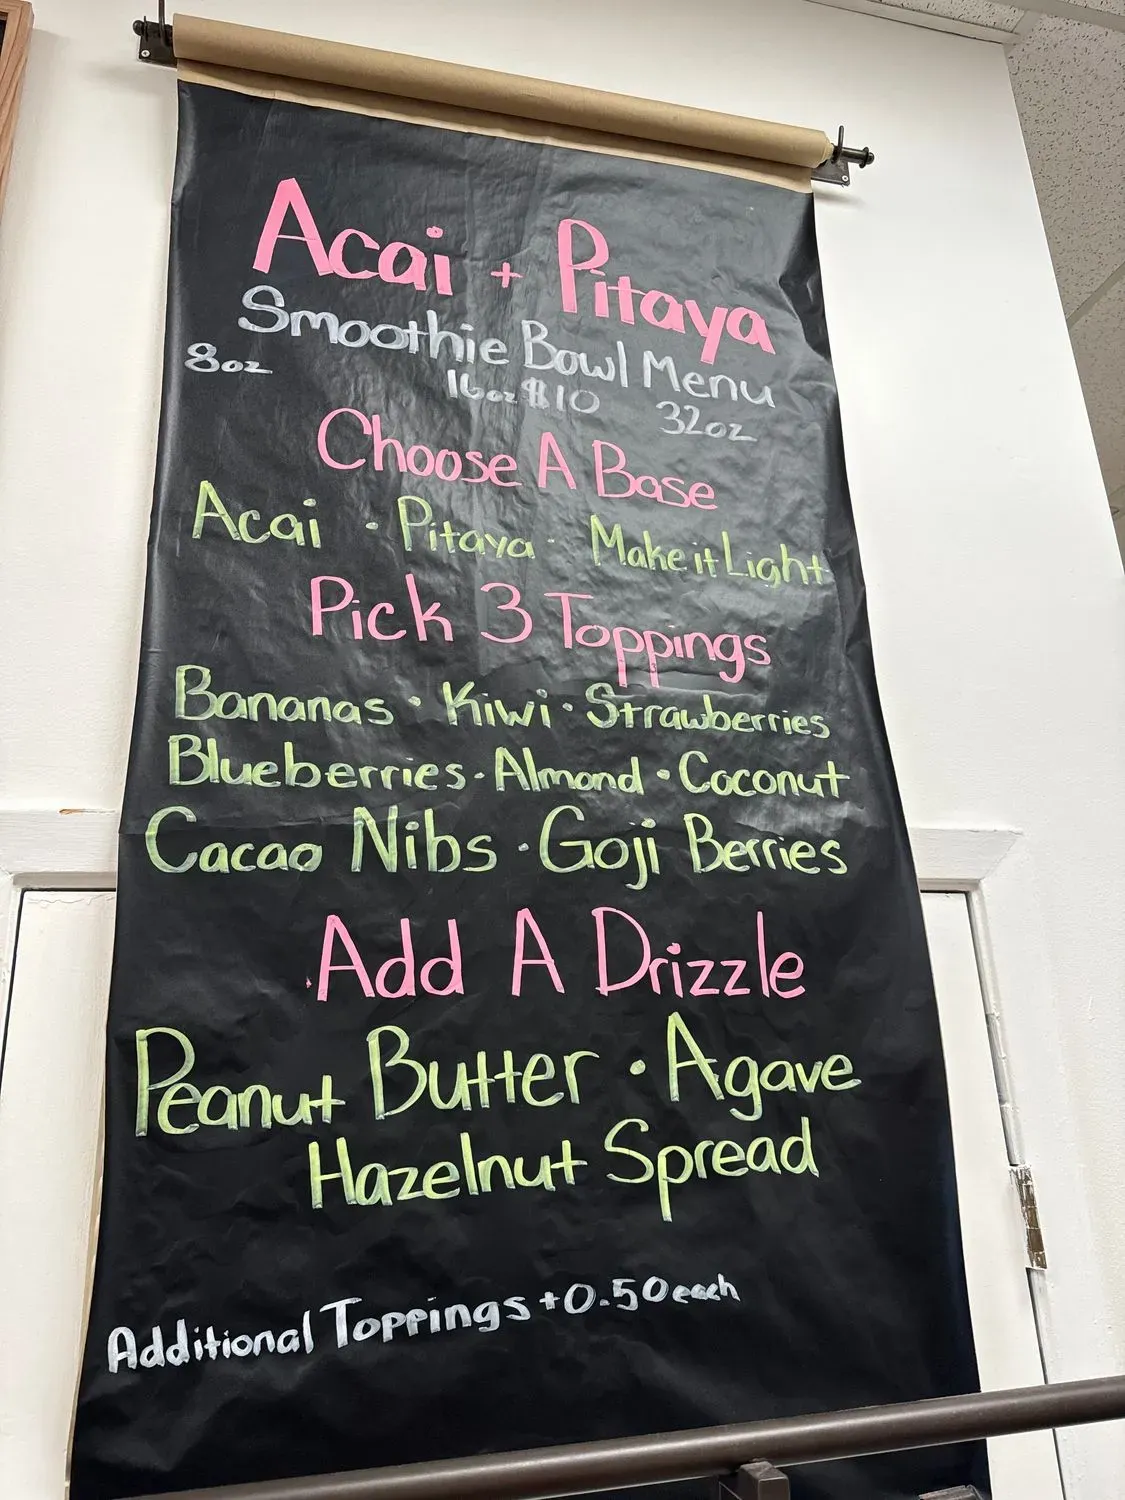 Acai + Pitaya
Smoothie Bowl Menu
8oz 16oz $10 32oz
Choose A Base
Acai · Pitaya · Make it Light
Pick 3 Toppings
Bananas · Kiwi · Strawberries
Blueberries · Almond · Coconut
Cacao Nibs · Goji Berries
Add A Drizzle
Peanut Butter · Agave
Hazelnut Spread
Additional Toppings +0.50 each